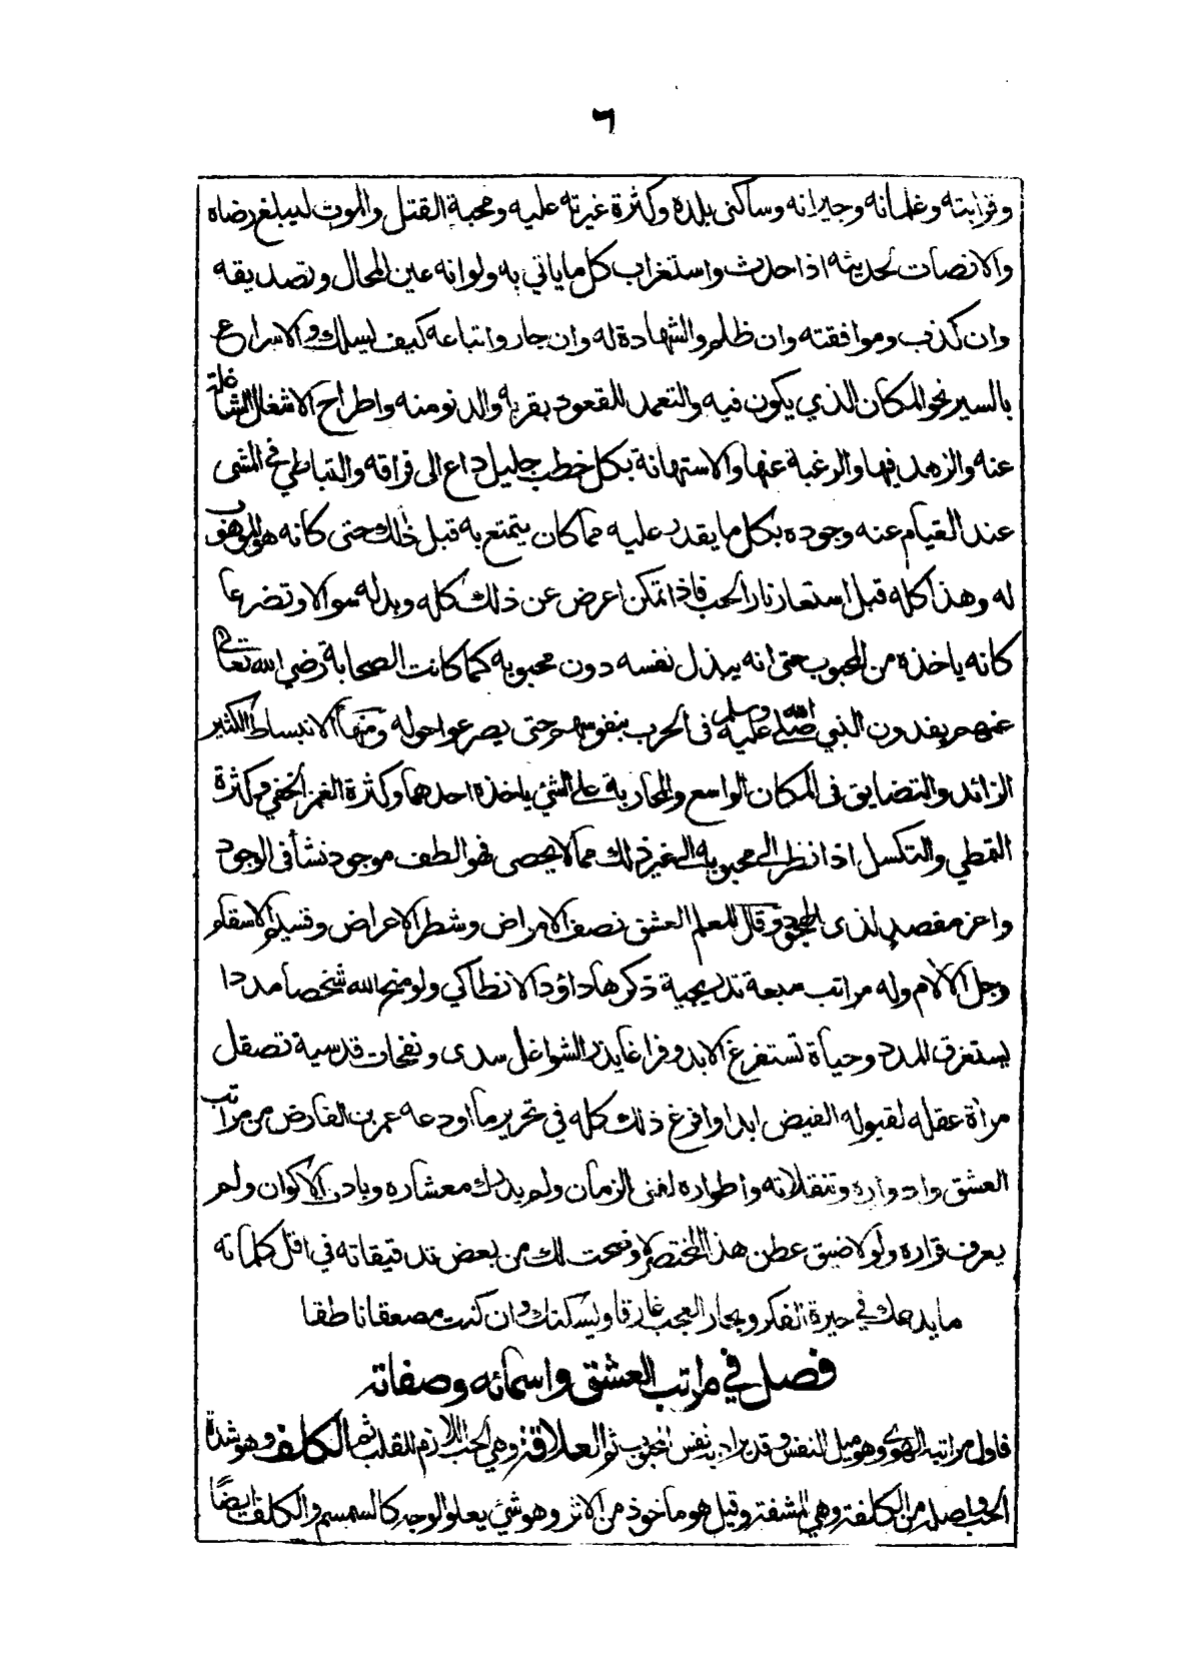 ٦
وقرابته وغلمانه وجيرانه وساكنى بلده وكثرة غيرته عليه ومحبة القتل والموت ليبلغ رضاه
والانصات لحديثه اذا حدث واستغراب كل ما ياتي به ولو انه عين المحال وتصديقه
وان كذب وموافقته وان ظلم والشهادة له وان جار واتباعه كيف يسلك والاسراع
بالسير نحو المكان الذي يكون فيه والتعمد للقعود بقربه والدنو منه واطراح الاشغال الشاغلة
عنه والزهد فيها والرغبة عنها والاستهانة بكل خطب جليل داع الى فراقه والتباطي في المشى
عند القيام عنه وجوده بكل ما يقدر عليه مما كان يتمتع به قبل ذلك حتى كانه هو الموهوب
له وهذا كله قبل استعار نار الحب فاذا تمكن اعرض عن ذلك كله وبدله سوالا وتضرعا
كانه ياخذه من المحبوب حتى انه يبذل نفسه دون محبوبه كما كانت الصحابة رضي الله تعالى
عنهم يفدون النبي صلى الله عليه وسلم فى الحرب بنفوسهم حتى يصرعوا حوله ومنها الانبساط الكثير
الزائد والتضايق فى المكان الواسع والمحاربة على الشئ ياخذه احدهما وكثرة الغمز الخفي وكثرة
التمطي والتكسل اذا نظر الى محبوبه الى غير ذلك مما لا يحصى فهو الطف موجود نشأ فى الوجود
واعز مقصد لذى الجود وقال المعلم العشق نصف الامراض وشطر الاعراض وقسيم الاسقام
وجل الآلام وله مراتب سبعة تدريجية ذكرها داؤد الانطاكي ولو منح الله شخصا مددا
يستغرق المدد وحياة تستفرغ الابد وفراغا يذر الشواغل سدى ونفحات قدسية تصقل
مرآة عقله لقبوله الفيض ابدا وافرغ ذلك كله في تحرير ما اودعه عمر بن الفارض من مراتب
العشق وادواره وتنقلاته واطواره لفنى الزمان ولم يدرك معشاره وباد الاكوان ولم
يعرف قراره ولولا ضيق عطن هذا المختصر لاوضحت لك من بعض تدقيقاته في اقل كلماته
ما يدعك في حيرة الفكر وبحار العجب غارقا ويسكتك وان كنت مصقعا ناطقا
فصل في مراتب العشق واسمائه وصفاته
فاول مراتبه الهوى وهو ميل النفس وقد يراد به نفس المحبوب ثم العلاقة وهي الحب اللازم للقلب ثم الكلف وهو شدة
الحب واصله من الكلفة وهي المشقة وقيل هو ماخوذ من الاثر وهو شئ يعلو الوجه كالسمسم والكلف ايضًا